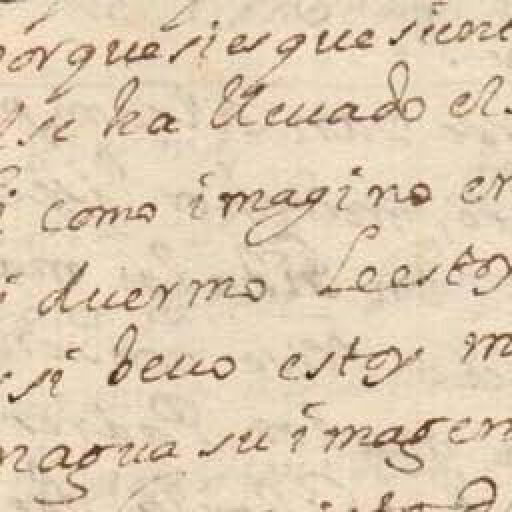 porque si es que sient
se ha lleuado el
si como imagino en
si duermo le estoy
si beuo estoy m
magua su imagen